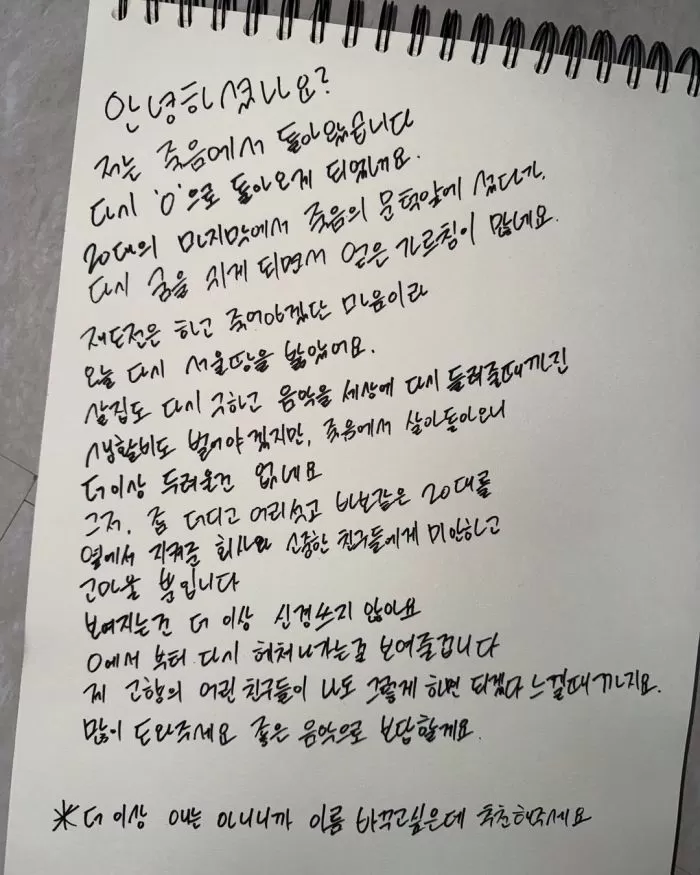 안녕하셨나요?
저는 죽음에서 돌아왔습니다
다시 '0'으로 돌아오게 되었네요.
20대의 마지막에서 죽음의 문턱앞에 섰다가,
다시 숨을 쉬게 되면서 얻은 가르침이 많네요.
재도전은 하고 죽어야겠단 마음이라
오늘 다시 서울땅을 밟았어요.
살집도 다시 구하고 음악을 세상에 다시 들려줄때까진
생활비도 벌어야 겠지만, 죽음에서 살아돌아오니
더이상 두려울건 없네요
그저, 좀 더디고 어리섯고 바보같은 20대를
옆에서 지켜준 회사와 소중한 친구들에게 미안하고
고마울 뿐입니다
보여지는건 더 이상 신경쓰지 않아요
0에서 부터 다시 헤쳐나가는걸 보여줄겁니다
제 고향의 어린 친구들이 나도 그렇게 하면 되겠다 느낄때 까지요.
많이 도와주세요 좋은 음악으로 보답할게요.
*더 이상 애는 아니니까 이름 바꾸고싶은데 추천해주세요